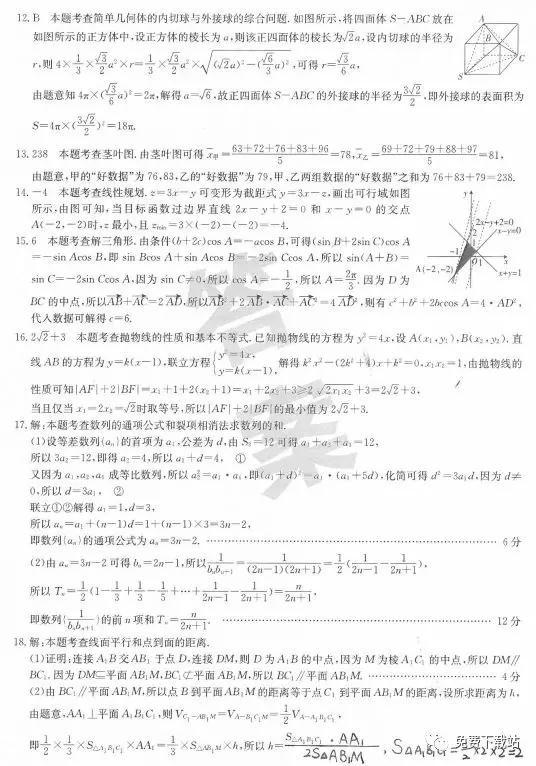 12. B　本题考查简单几何体的内切球与外接球的综合问题. 如图所示,将四面体 S－ABC 放在
如图所示的正方体中,设正方体的棱长为 a,则该正四面体的棱长为√2a,设内切球的半径为
r,则 4×1/3×√3/2a²×r=1/3×√3/2a²×√((√2a)²−(√6/3 a)²),可得 r=√3/6 a,
由题意知 4π×(√3/6 a)²=2π,解得 a=√6,故正四面体 S－ABC 的外接球的半径为 3√2/2,即外接球的表面积为
S=4π×(3√2/2)²=18π.
A
S
C
13. 238　本题考查茎叶图. 由茎叶图可得 x̄甲=(63+72+76+83+96)/5=78,x̄乙=(69+72+79+88+97)/5=81,
由题意,甲的“好数据”为 76,83,乙的“好数据”为 79,甲、乙两组数据的“好数据”之和为 76+83+79=238.
14. －4　本题考查线性规划. z=3x－y 可变形为截距式 y=3x－z,画出可行域如图
所示,由图可知,当目标函数过边界直线 2x－y+2=0 和 x－y=0 的交点
A(－2,－2)时,z 最小,且 zmin=3×(－2)－(－2)=－4.
y
2x－y+2=0
x－y=0
A(－2,－2)
x+y=1
15. 6　本题考查解三角形. 由条件(b+2c)cos A=－acos B,可得(sin B+2sin C)cos A
=－sin Acos B,即 sin Bcos A+sin Acos B=－2sin Ccos A,所以 sin(A+B)=
sin C=－2sin Ccos A,因为 sin C≠0,所以 cos A=－1/2,所以 A=2π/3. 因为 D 为
BC 的中点,所以AB+AC=2AD,所以AB²+2AB·AC+AC²=4AD²,则有 c²+b²+2bccos A=4·AD²,
代人数据可解得 c=6.
16. 2√2+3　本题考查抛物线的性质和基本不等式. 已知抛物线的方程为 y²=4x,设 A(x₁,y₁),B(x₂,y₂). 直
线 AB 的方程为 y=k(x－1),联立方程{y²=4x, y=k(x－1), 解得 k²x²－(2k²+4)x+k²=0,x₁x₂=1,由抛物线的
性质可知|AF|+2|BF|=x₁+1+2(x₂+1)=x₁+2x₂+3≥2√(2x₁x₂)+3=2√2+3,
当且仅当 x₁=2x₂=√2时取等号,所以|AF|+2|BF|的最小值为 2√2+3.
17. 解:本题考查数列的通项公式和裂项相消法求数列的和.
(1)设等差数列{aₙ}的首项为 a₁,公差为 d,由 S₃=12 可得 a₁+a₂+a₃=12,
所以 3a₂=12,即得 a₂=4,所以 a₁+d=4, ①
又因为 a₁,a₂,a₆ 成等比数列,所以 a₂²=a₁·a₆,即(a₁+d)²=a₁·(a₁+5d),化简可得 d²=3a₁d,因为 d≠
0,所以 d=3a₁, ②
联立①②解得 a₁=1,d=3,
所以 aₙ=a₁+(n－1)d=1+(n－1)×3=3n－2,
即数列{aₙ}的通项公式为 aₙ=3n－2. …………………… 6 分
(2)由 aₙ=3n－2 可得 bₙ=2n－1,所以 1/(bₙbₙ₊₁)=1/((2n－1)(2n+1))=1/2(1/(2n－1)－1/(2n+1)),
所以 Tₙ=1/2(1－1/3+1/3－1/5+…+1/(2n－1)－1/(2n+1))=n/(2n+1),
即数列{1/(bₙbₙ₊₁)}的前 n 项和 Tₙ=n/(2n+1). …………………… 12 分
18. 解:本题考查线面平行和点到面的距离.
(1)证明:连接 A₁B 交 AB₁ 于点 D,连接 DM,则 D 为 A₁B 的中点,因为 M 为棱 A₁C₁ 的中点,所以 DM∥
BC₁. 因为 DM⊂平面 AB₁M,BC₁⊄平面 AB₁M,所以 BC₁∥平面 AB₁M. …………………… 4 分
(2)由 BC₁∥平面 AB₁M,所以点 B 到平面 AB₁M 的距离等于点 C₁ 到平面 AB₁M 的距离,设所求距离为 h,
由题意,AA₁⊥平面 A₁B₁C₁,则 V_C₁－AB₁M=V_A－B₁C₁M=1/2 V_A－A₁B₁C₁,
即 1/2×1/3×S△A₁B₁C₁×AA₁=1/3×S△AB₁M×h,所以 h=S△A₁B₁C₁·AA₁/2S△AB₁M, S△A₁B₁C₁=½×2×2=2
答案
免费下载站